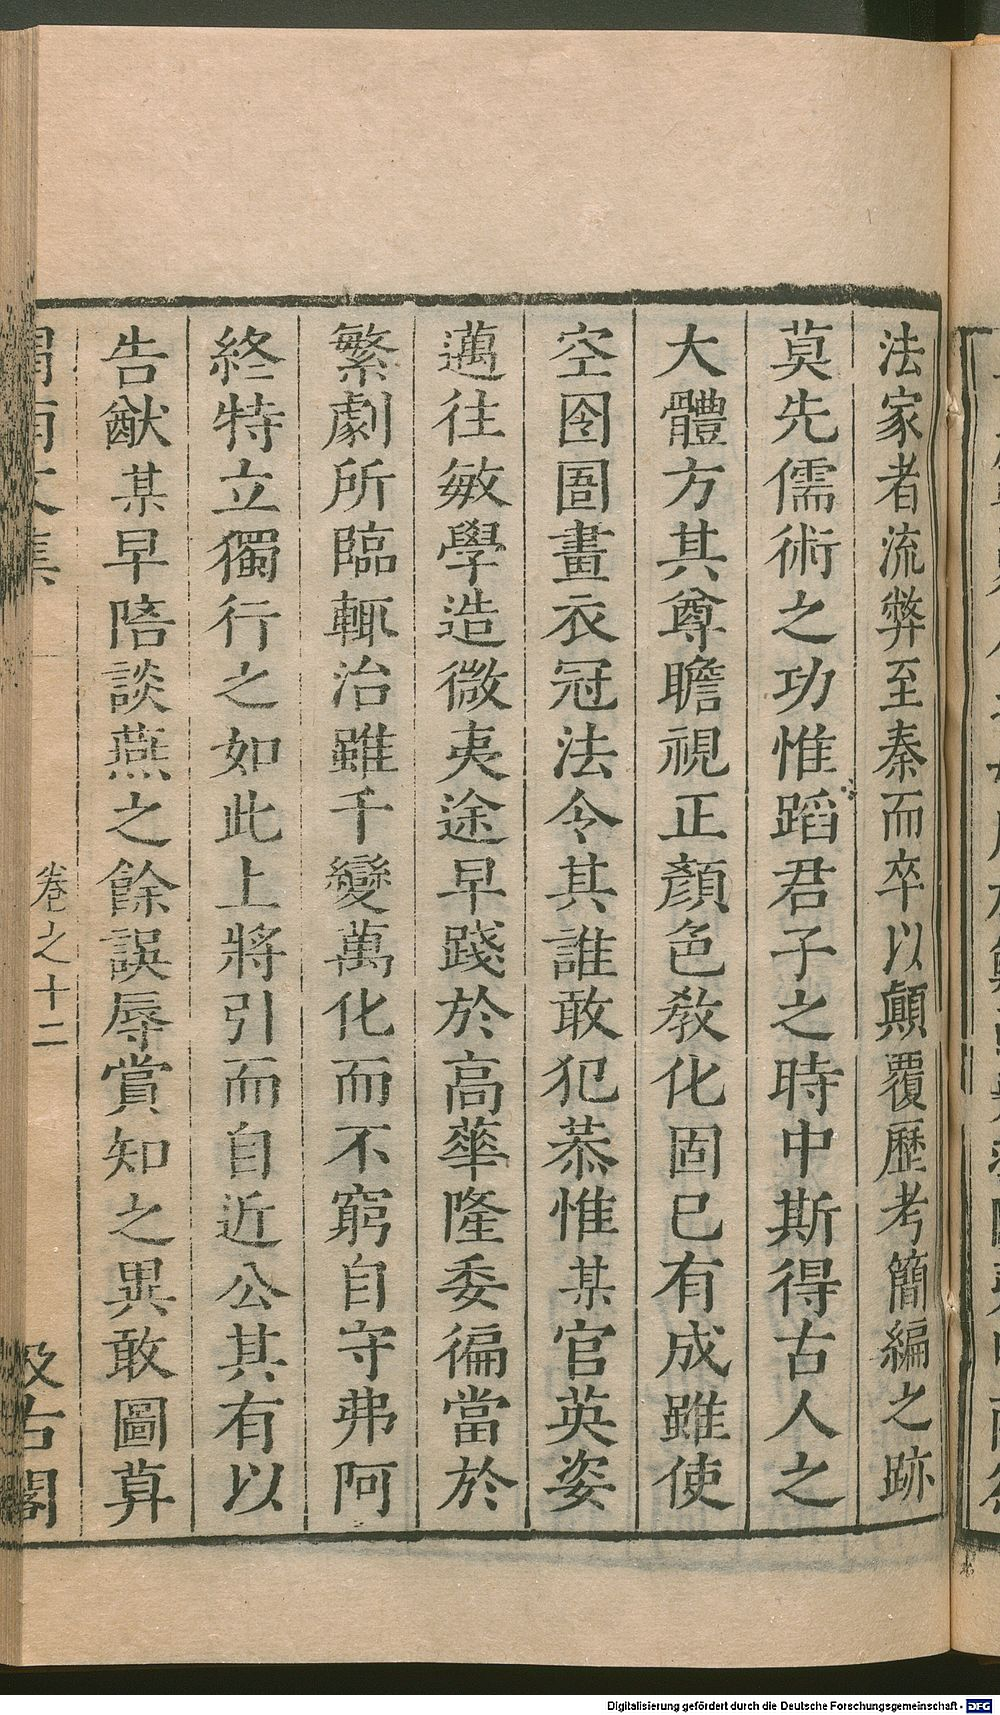 法家者流弊至秦而卒以顛覆歷考簡編之跡
莫先儒術之功惟蹈君子之時中斯得古人之
大體方其尊瞻視正顏色敎化固已有成雖使
空囹圄畫衣冠法令其誰敢犯恭惟某官英姿
邁往敏學造微夷途早踐於高華隆委徧當於
繁劇所臨輒治雖千變萬化而不窮自守弗阿
終特立獨行之如此上將引而自近公其有以
告猷某早陪談燕之餘誤辱賞知之異敢圖算
渭南文集
卷之十二
汲古閣
Digitalisierung gefördert durch die Deutsche Forschungsgemeinschaft - DFG